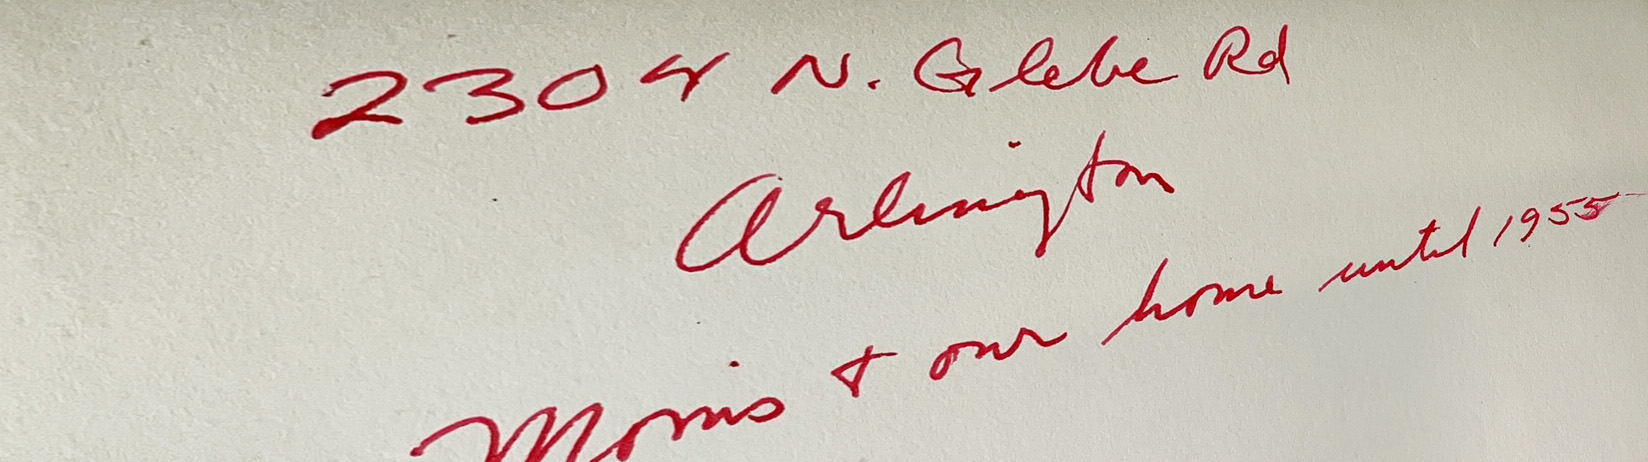 2304 N. Glebe Rd
Arlington
Mom's & our home until 1955